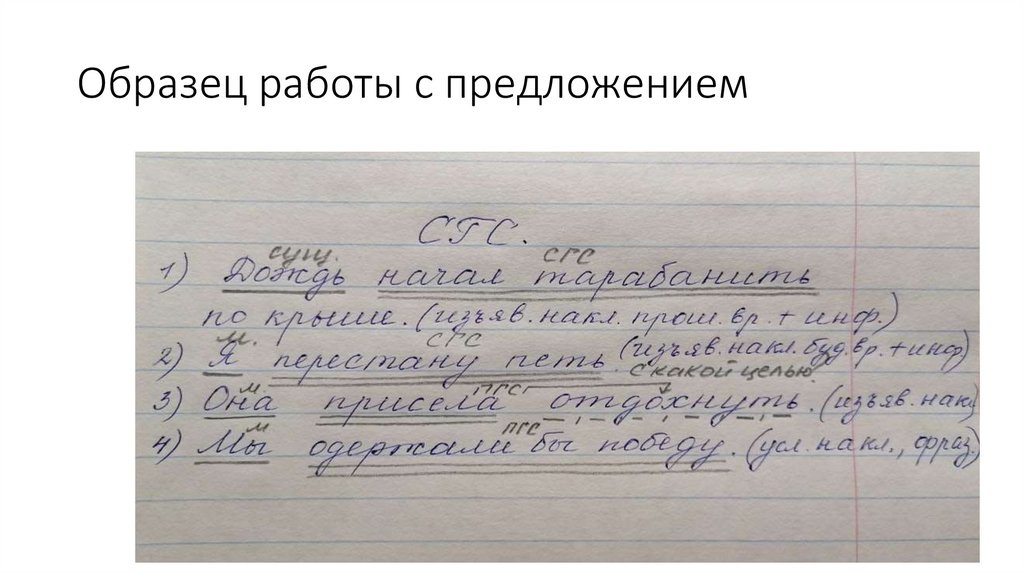 Образец работы с предложением
СГС.
сущ. СГС
1) Дождь начал тарабанить
по крыше. (изъяв. накл. прош. вр. + инф.)
м. СГС
2) Я перестану петь. (изъяв. накл. буд. вр. + инф)
м ПГС с какой целью?
3) Она присела отдохнуть. (изъяв. накл)
м ПГС
4) Мы одержали бы победу. (усл. накл., фраз.)